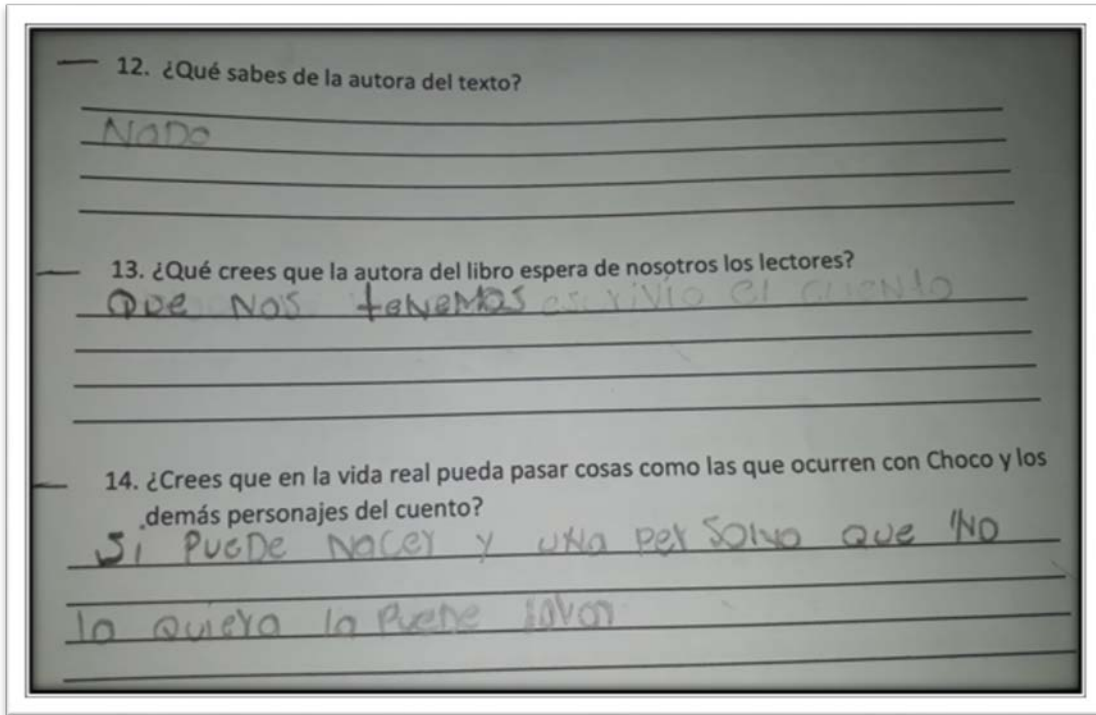 12. ¿Qué sabes de la autora del texto?
NaDa
13. ¿Qué crees que la autora del libro espera de nosotros los lectores?
Que Nos teNeMos escrivio el cueNto
14. ¿Crees que en la vida real pueda pasar cosas como las que ocurren con Choco y los
demás personajes del cuento?
Si PueDe Nacer y uNa perSoNa que No
la quiera la Puede